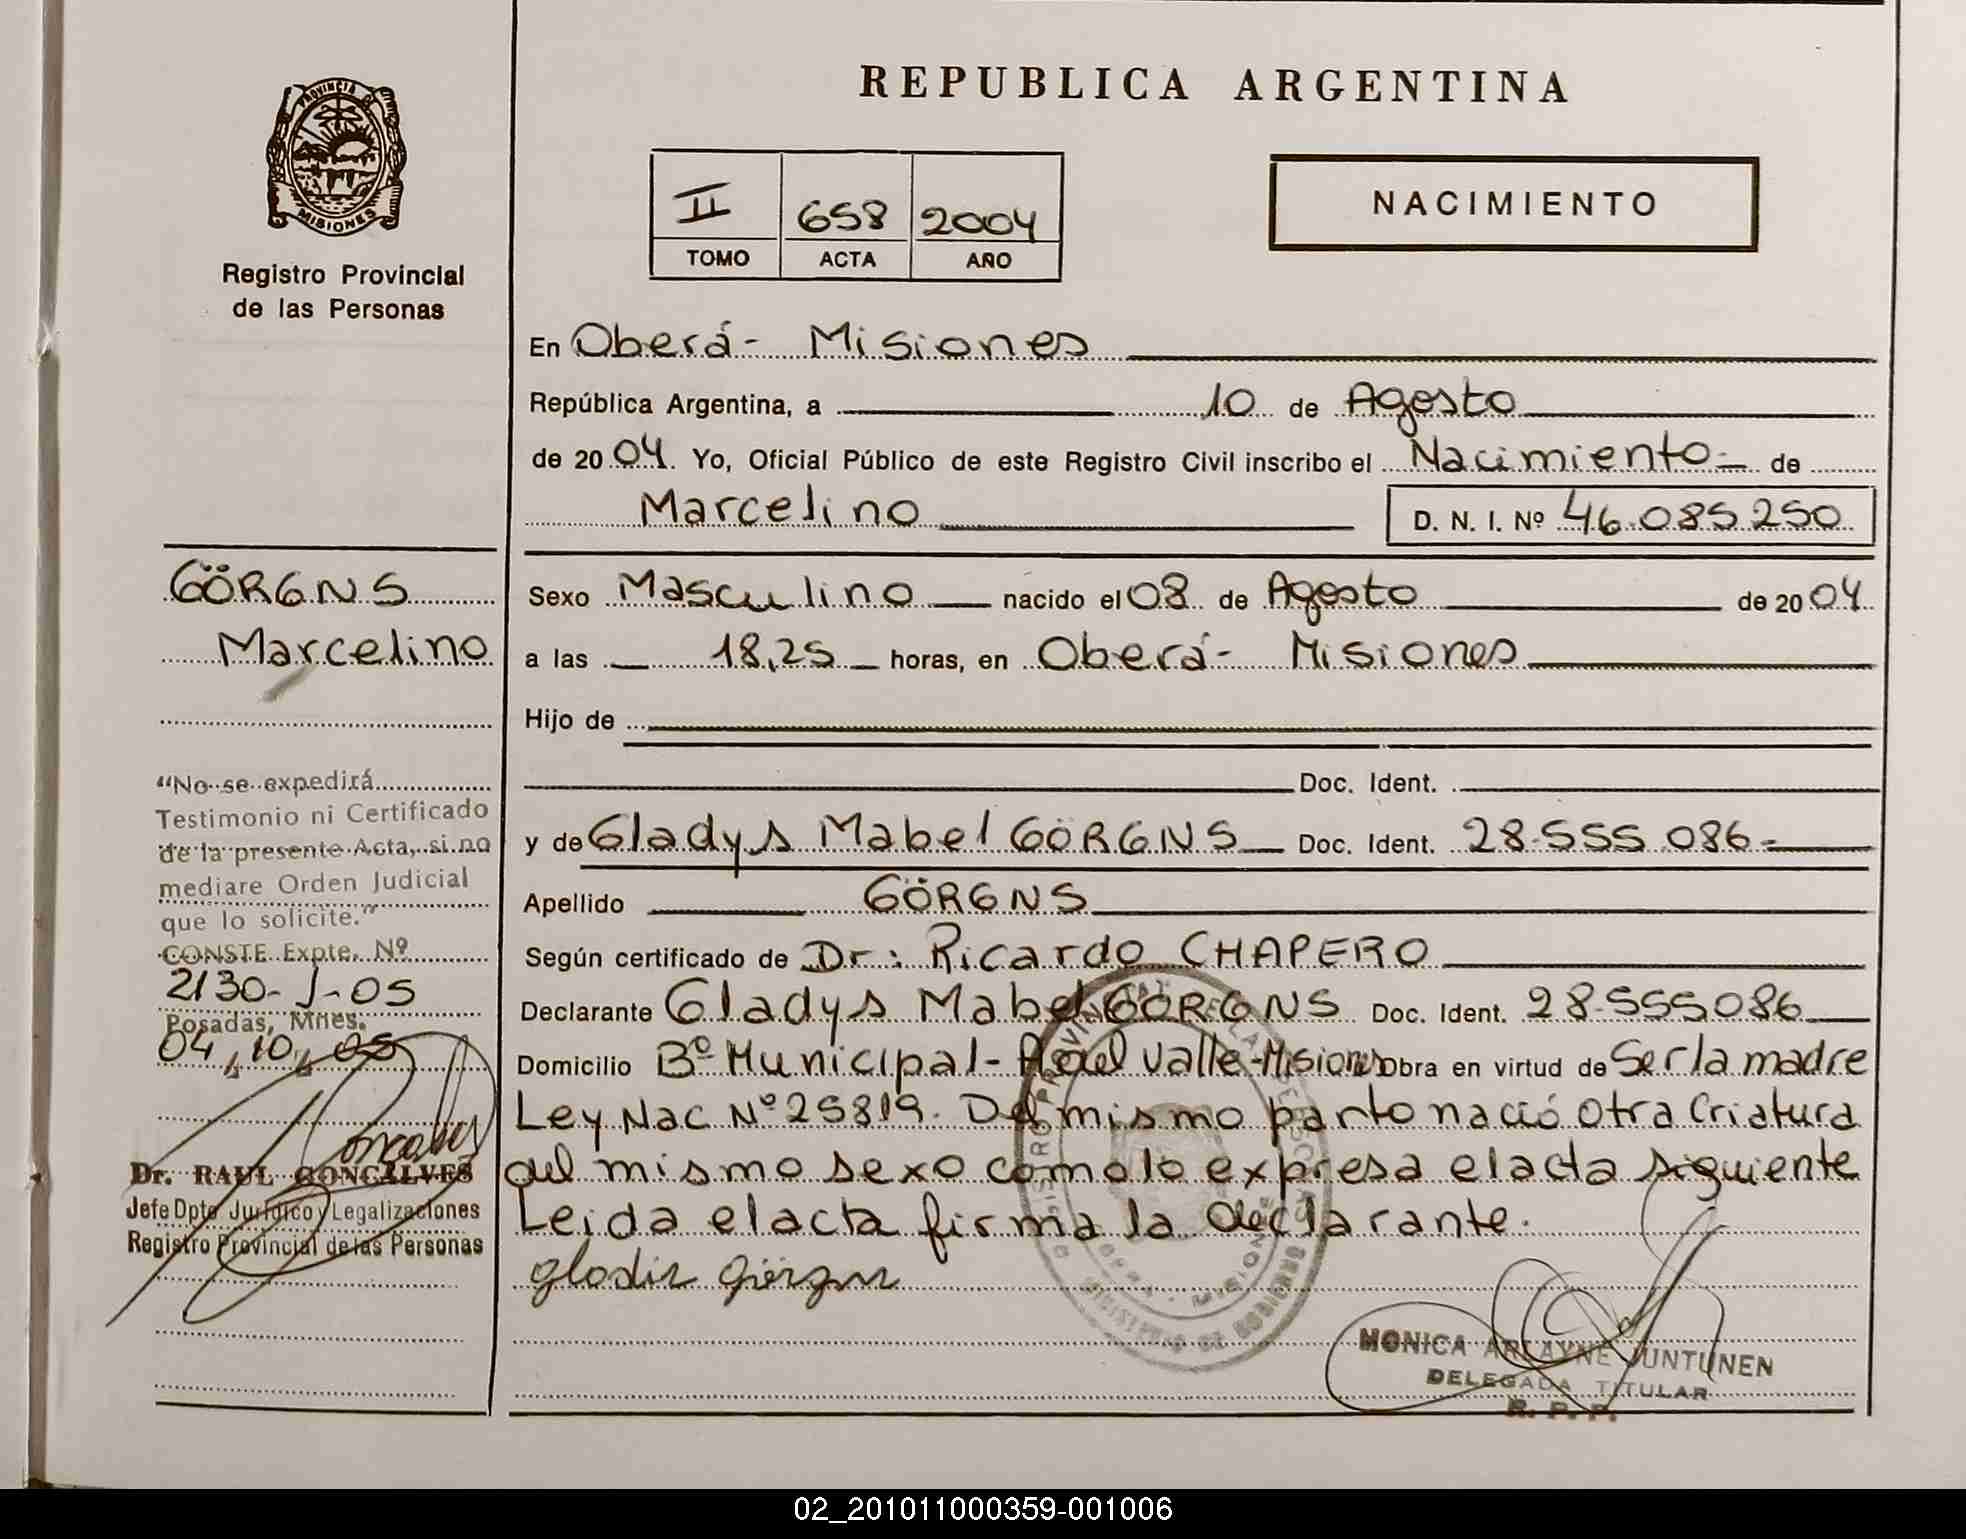 REPUBLICA ARGENTINA
PROVINCIA DE
MISIONES
Registro Provincial
de las Personas
II 658 2004
TOMO ACTA AÑO
NACIMIENTO
En Oberá - Misiones
República Argentina, a 10 de Agosto
de 2004. Yo, Oficial Público de este Registro Civil inscribo el Nacimiento de
Marcelino D. N. I. Nº 46.085.250
GÖRGNS
Marcelino
Sexo Masculino nacido el 08 de Agosto de 2004
a las 18,25 horas, en Oberá - Misiones
Hijo de
Doc. Ident.
y de Gladys Mabel GÖRGNS Doc. Ident. 28.555.086
Apellido GÖRGNS
Según certificado de Dr: Ricardo CHAPERO
Declarante Gladys Mabel GÖRGNS Doc. Ident. 28.555.086
Domicilio Bº Municipal - del Valle - Misiones Obra en virtud de Ser la madre
Ley Nac Nº 25819. Del mismo parto nació otra criatura
del mismo sexo como lo expresa el acta siguiente
Leida el acta firma la declarante.
"No se expedirá
Testimonio ni Certificado
de la presente Acta, si no
mediare Orden Judicial
que lo solicite."
CONSTE Expte. Nº
2130-J-05
Posadas, Mnes.
04, 10, 05
Dr. RAUL GONCALVES
Jefe Dpto Jurídico y Legalizaciones
Registro Provincial de las Personas
MONICA JUNTUNEN
DELEGADA TITULAR
R. P. P.
02_201011000359-001006